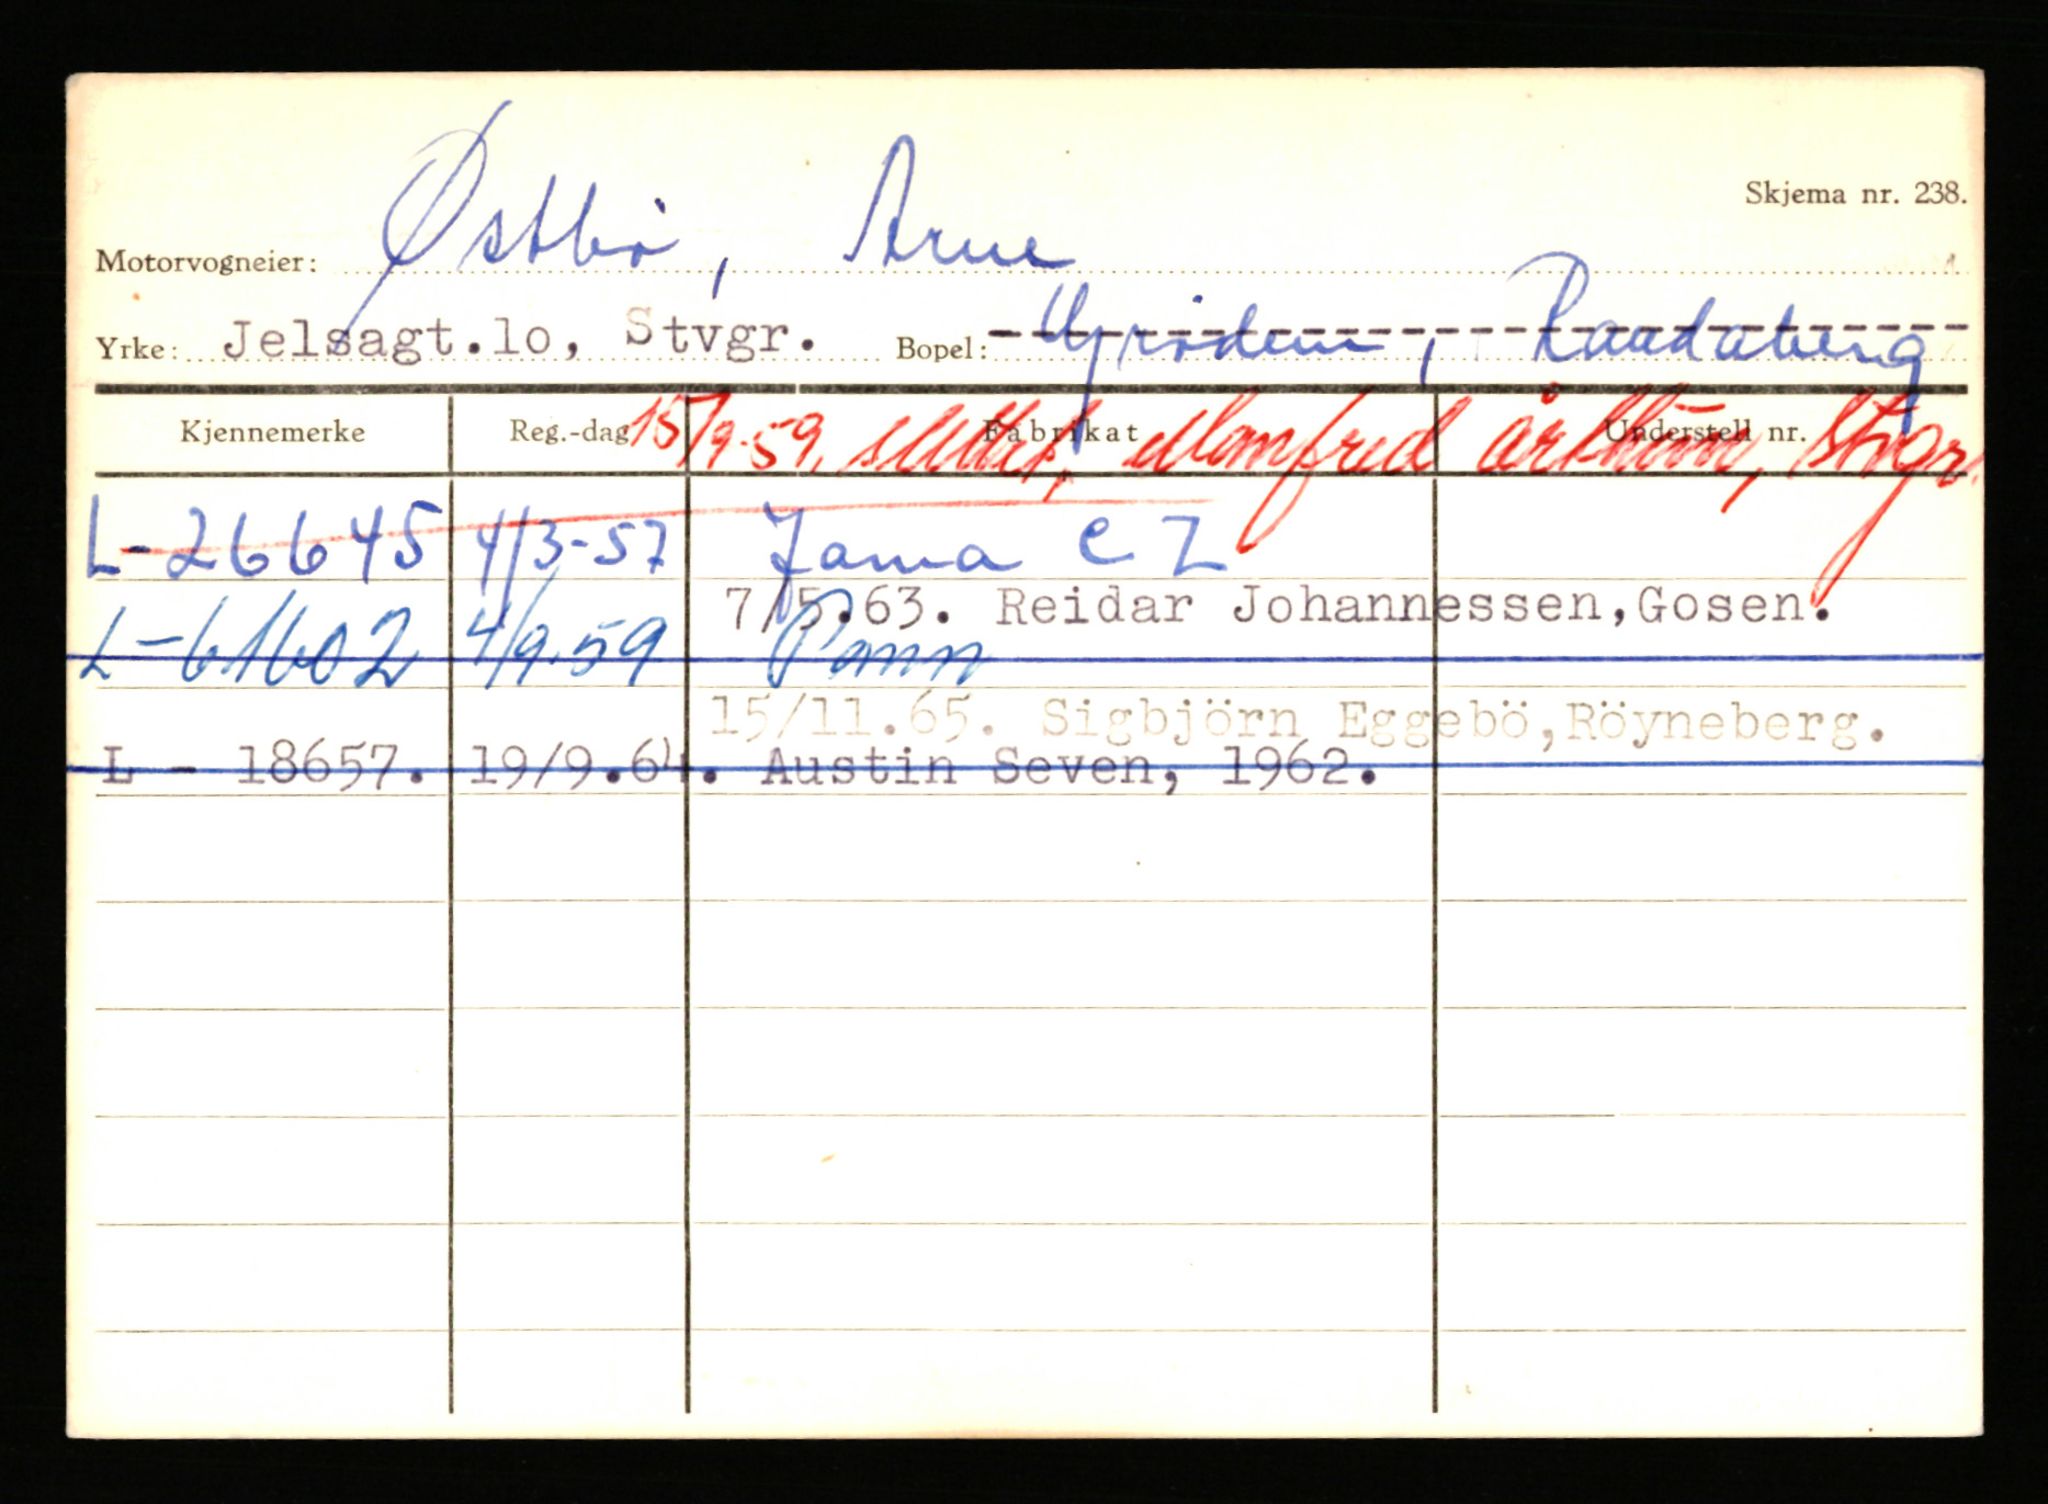 Skjema nr. 238.
Motorvogneier: Østbø, Arne
Yrke: Jelsagt.lo, Stvgr. Bopel: Grødem, Randaberg
Kjennemerke Reg.-dag Fabrikat Understell nr.
15/9-59, slettet, Manfred Stvgr.
L-26645 4/3-57 Jawa CZ
7/5.63. Reidar Johannessen,Gosen.
L-61602 4/9.59 Pann
15/11.65. Sigbjörn Eggebö,Röyneberg.
L - 18657. 19/9.64. Austin Seven, 1962.